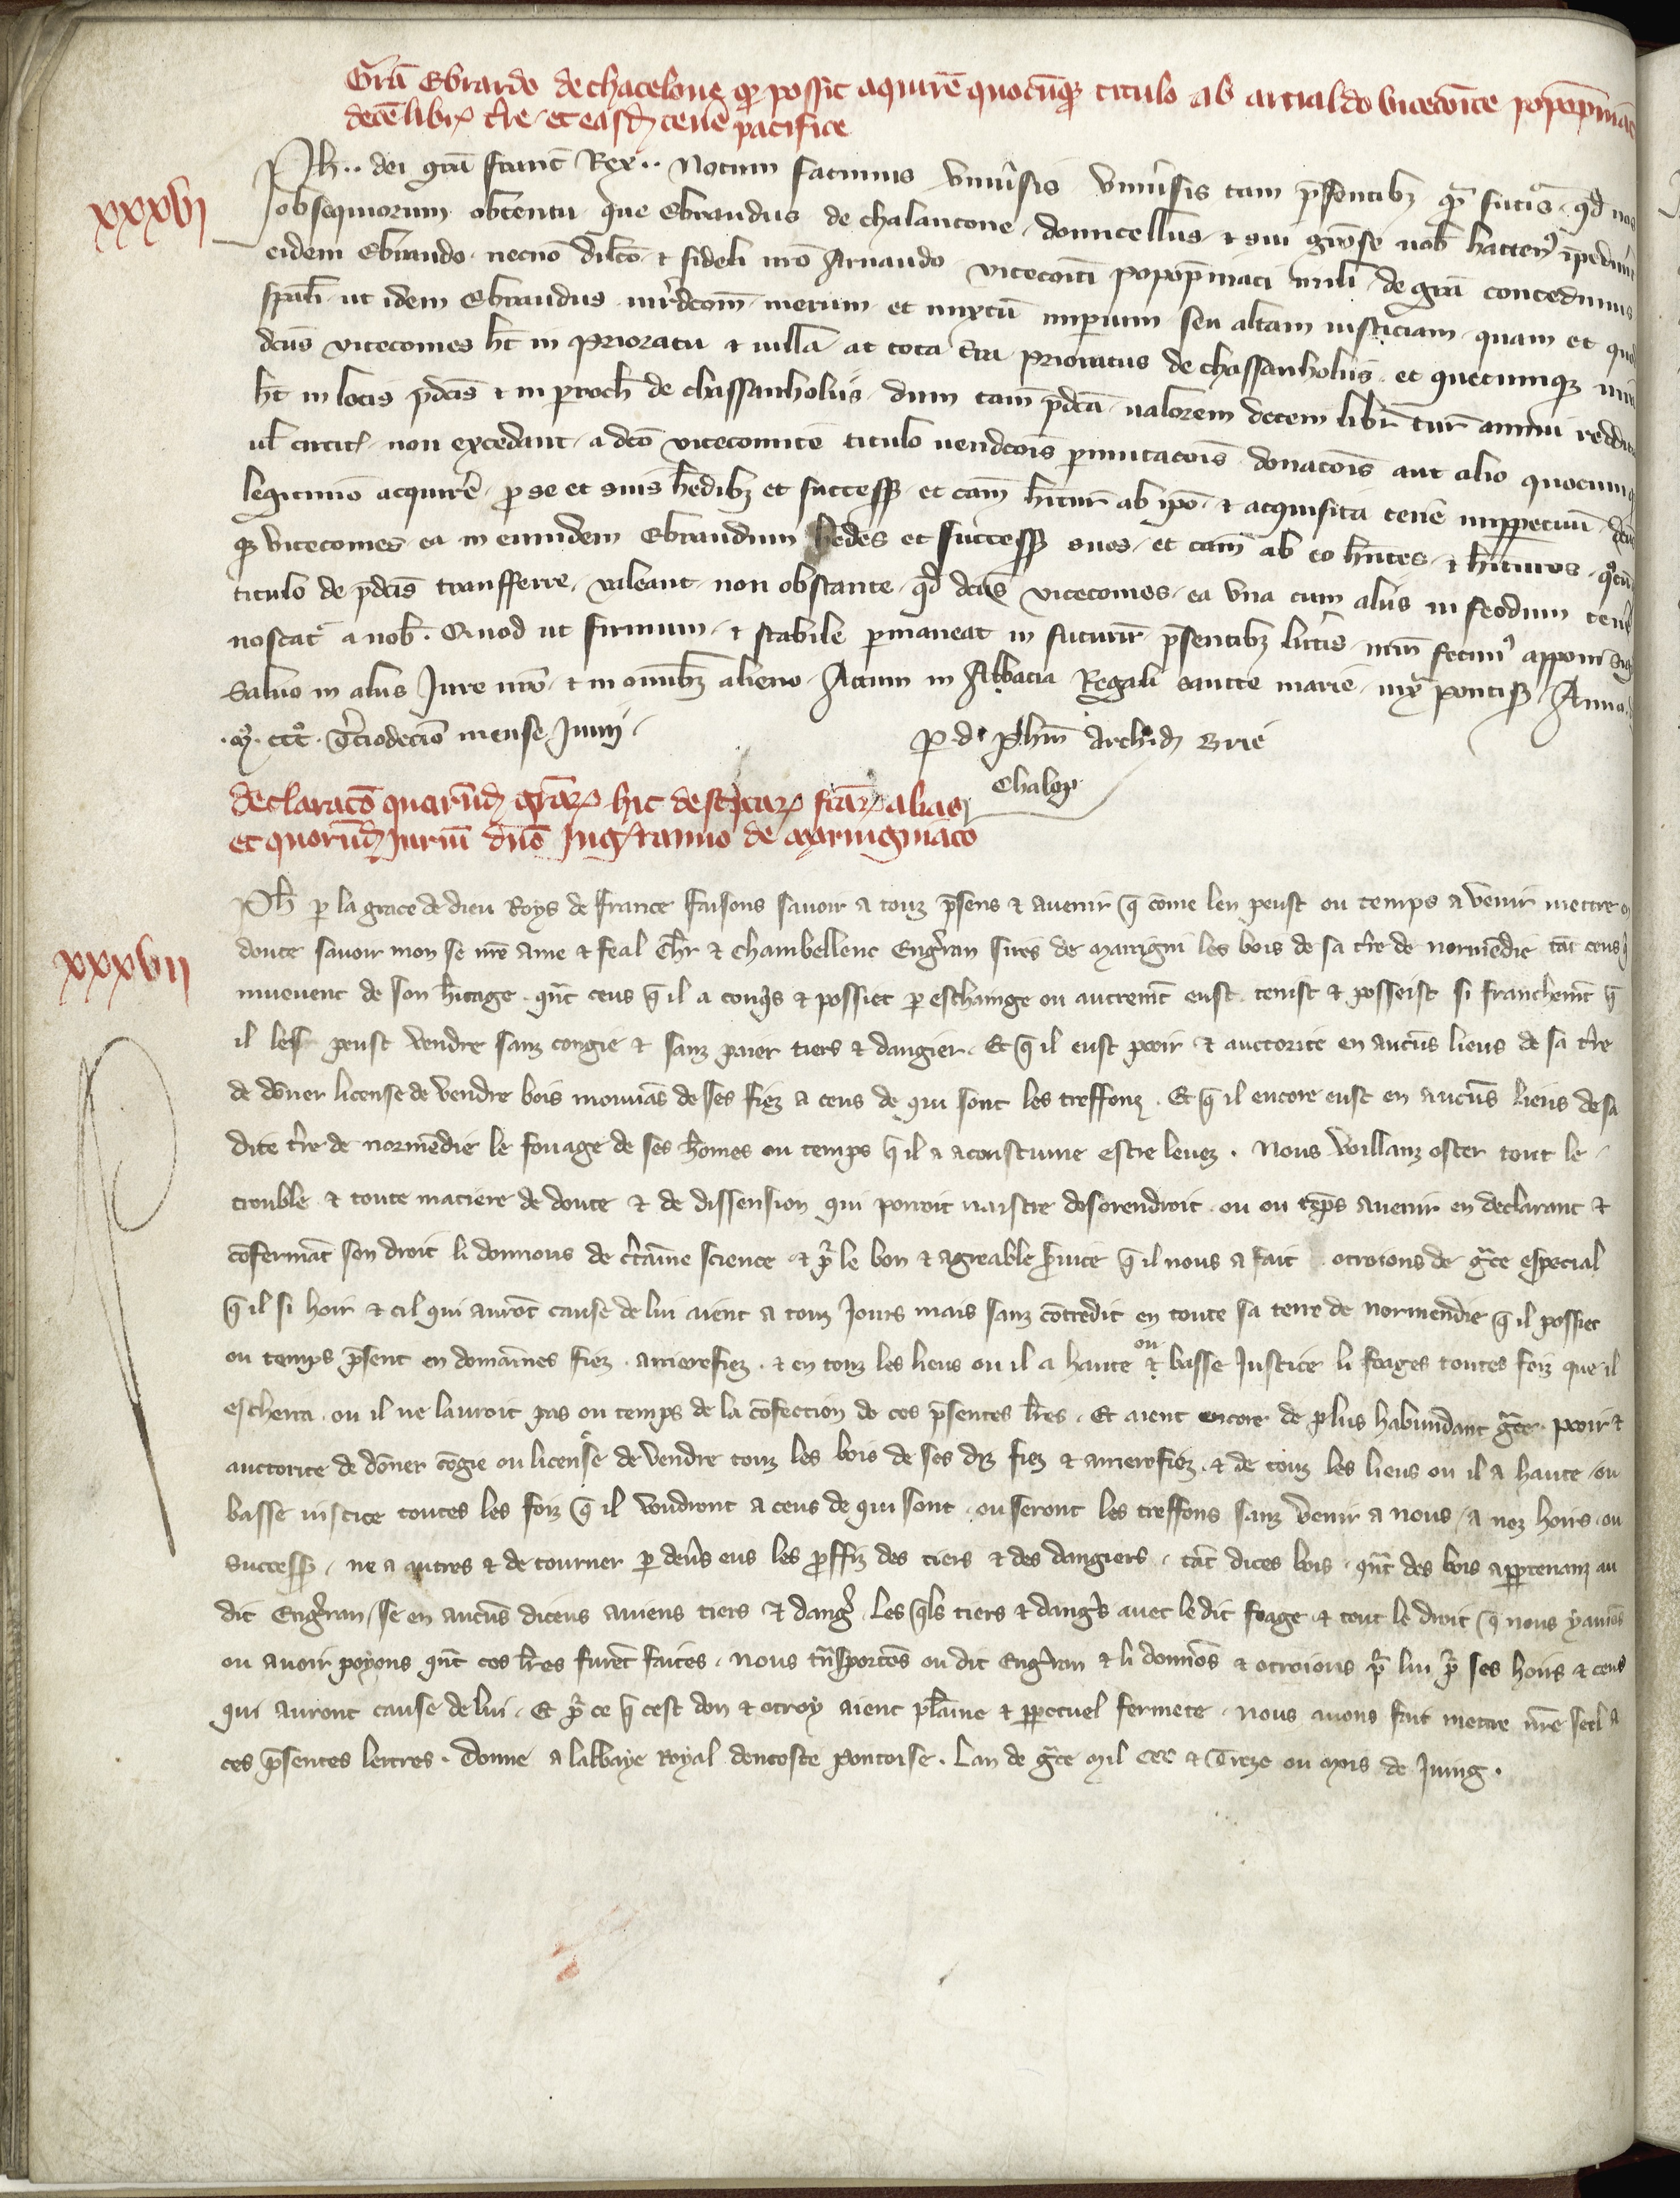 Gr̃a Ebrardo de chacelone qđ possit aquirẽ quocũqꝫ titulo ab artialdo vicecoĩte popopm̃iac
decẽ libꝝ t̃re et easdꝫ tenẽ pacifice
xxxvi
Ph̃ .. dei gr̃a franc̃ Rex .. Notum facimus vniũsis vniũsis tam p̃sentibꝫ qᵃ̃ futis̃ . qđ nos
obsequiorum obtentu que Ebraudus de chalancone domicellus ⁊ sui gñose nob̃ hacten⁹ ĩpedũt
eidem Ebraudo necnõ dilc̃o ⁊ fideli nr̃o Arnaudo vicecoĩti popopm̃iaci mili de gr̃a concedimus
sp̃ali ut idem Ebraudus iur̃dcõm merum et mixtũ imperium seu altam iusticiam quam et quod
dc̃us vicecomes ht̃ in prioratu ⁊ uilla ac tota t̃ra prioratus de chassanholiis et quecumqꝫ iura
ht̃ in locis p̃dcis ⁊ in ꝑroch̃ de chassanholiis dum tam̃ p̃dc̃a ualorem decem libr̃ tur̃ annui redditus
ul̃ circit̃ non excedant a dc̃o vicecomite titulo uendc̃ois ꝑmutacõis donacõis aut alio quocumqꝫ
legitimo acquirẽ ꝓ se et suis h̃edibꝫ et success̃ et cam̃ h̃itur̃ ab ipõ ⁊ acquisita tenẽ imppetuũ dc̃us
qꝫ vicecomes ea in eumdem Ebraudum h̃edes et success̃ suos et cam̃ ab eo h̃ntes ⁊ h̃ituros qᵒcũ
titulo de p̃dcis transfferre valeant non obstante qđ dc̃us vicecomes ea vna cum aliis in feodum tenẽ
noscat᷑ a nob̃ . Quod ut firmum ⁊ stabile ꝑmaneat in futur̃ p̃sentibꝫ litt̃is nr̃m fecim⁹ apponi sig
Saluo in aliis Iure nr̃o ⁊ in om̃ibꝫ alieno Actum in Abbacia Regali sancte marie iux̃ pontis̃ Anno d
. mᵒ. cccᵒ. t̃ciodecio mense Iunij
ꝑ d̃ ph̃m archid̃ Brie
Chaloꝑ
declaracõ quarũdꝫ gr̃aꝝ hic desc̃ptaꝝ fc̃aꝝ alias
et quorũdꝫ iuriũ dñõ Ing̃ranno de marrigniaco
xxxvii
Ph̃ ꝑ la grace de dieu Roys de france faisons sauoir a touz p̃sens ⁊ auenir q̃ cõme len peust ou temps a venir mettre en
doute sauoir mon se nr̃e ame ⁊ feal ch̃r ⁊ chambellenc Eng̃ran sires de marrigni les bois de sa t̃re de normẽdie tãt ceus q̃
mueuent de son h̃itage . qñt ceus q̃ il a conq̃s ⁊ possiet ꝑ eschainge ou autrem̃t eust tenist ⁊ posseist si franchem̃t q̃
il les peust vendre sanz congie ⁊ sanz paier tiers ⁊ dangier . Et q̃ il eust pooir ⁊ auctorite en aucũs lieus de sa t̃re
de dõner license de vendre bois mouuãs de ses fiez a ceus de qui sont les treffonz . Et q̃ il encore eust en aucũs lieus de sa
dite t̃re de normẽdie le fouage de ses hõmes ou temps q̃ il a acoustume estre leuez . Nous voillanz oster tout le
trouble ⁊ toute matiere de doute ⁊ de dissension qui porroit naistre desorendroit ou ou tẽps auenir en declarant ⁊
cõfermãt son droit li donnons de c̃tainne science ⁊ pr̃ le bon ⁊ agreable s̃uice q̃ il nous a fait otroions de gᵃ̃ce especial
q̃ il si hoir ⁊ cil qui aurõt cause de lui aient a touz jours mais sanz cõtredit en toute sa terre de normendie q̃ il possiet
ou temps p̃sent en domaines fiez . arrierefiez . ⁊ en touz les lieus ou il a haute ou ⁊ basse Iustice li foages toutes foiz que il
escherra . ou il ne lauroit pas ou temps de la cõfection de ces p̃sentes lr̃es . Et aient encore de plus habundant gᵃ̃ce pooir ⁊
auctorite de dõner cõgie ou license de vendre touz les bois de ses dz̃ fiez ⁊ arrierefiez . ⁊ de touz les lieus ou il a haute ou
basse iustice toutes les foiz q̃ il voudront a ceus de qui sont ou seront les treffons sanz venir a nous a noz hoirs ou
success̃ . ne a autres ⁊ de tourner ꝑ deũs eus les ꝓffiz des tiers ⁊ des dangiers . tãt dices bois . qñt des bois apꝑtenanz au
dit Eng̃ran se en aucũs diceus auiens tiers ⁊ dang̃ . Les q̃ls tiers ⁊ dang̃s auec le dit foage ⁊ tout le droit q̃ nous y auiõs
ou auoir poyons qñt ces lr̃es furẽt faites . nous tr̃nsportõs ou dit Eng̃ran ⁊ li donnõs ⁊ otroions pr̃ lui pr̃ ses hoirs ⁊ ceus
qui auront cause de lui . Et pr̃ ce q̃ cest don ⁊ otroy aient plãine ⁊ ꝑpetuel fermete . nous auons fait mettre nr̃e seel a
ces p̃sentes lettres . donne a labbaye Royal dencoste pontoise . Lan de gᵃ̃ce mil ccc ⁊ Treze ou mois de Juing .